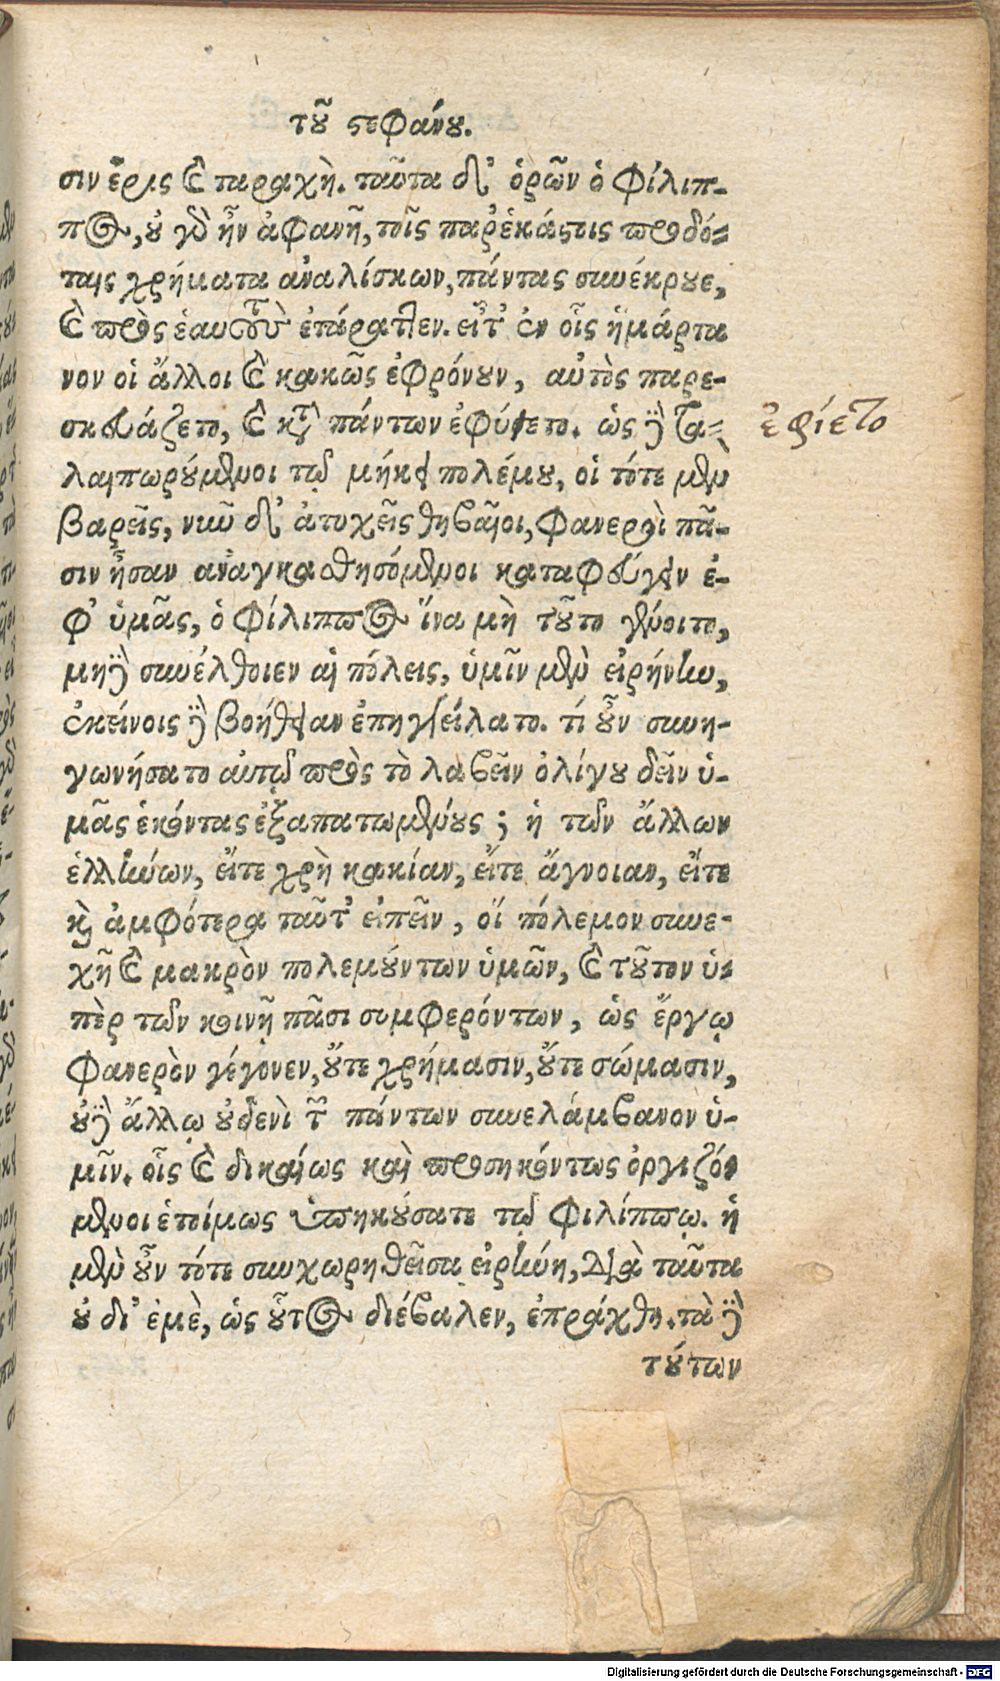 τοῦ στεφάνου.
σιν ἔρις καὶ ταραχὴ. ταῦτα δ' ὁρῶν ὁ Φίλιπ-
πος, οὐ γὰρ ἦν ἀφανῆ, τοῖς παρ' ἑκάστοις προδό-
ταις χρήματα ἀναλίσκων, πάντας συνέκρουε,
καὶ πρὸς ἑαυτοὺς ἐτάραττεν. εἶτ' ἐν οἷς ἡμάρτα
νον οἱ ἄλλοι καὶ κακῶς ἐφρόνουν, αὐτὸς παρε-
σκευάζετο, καὶ κατὰ πάντων ἐφύετο. ὡς δὲ τα-
λαιπωρούμενοι τῷ μήκει πολέμου, οἱ τότε μὲν
βαρεῖς, νῦν δ' ἀτυχεῖς θηβαῖοι, φανεροὶ πᾶ-
σιν ἦσαν ἀναγκασθησόμενοι καταφεύγειν ἐ-
φ' ὑμᾶς, ὁ Φίλιππος ἵνα μὴ τοῦτο γένοιτο,
μηδὲ συνέλθοιεν αἱ πόλεις, ὑμῖν μὲν εἰρήνην,
ἐκείνοις δὲ βοήθειαν ἐπηγγείλατο. τί οὖν συνη-
γωνήσατο αὐτῷ πρὸς τὸ λαβεῖν ὀλίγου δεῖν ὑ-
μᾶς ἑκόντας ἐξαπατωμένους; ἡ τῶν ἄλλων
ἑλλήνων, εἴτε χρὴ κακίαν, εἴτε ἄγνοιαν, εἴτε
καὶ ἀμφότερα ταῦτ' εἰπεῖν, οἵ πόλεμον συνε-
χῆ καὶ μακρὸν πολεμούντων ὑμῶν, καὶ τοῦτον ὑ-
πὲρ τῶν κοινῇ πᾶσι συμφερόντων, ὡς ἔργῳ
φανερὸν γέγονεν, οὔτε χρήμασιν, οὔτε σώμασιν,
οὐδὲ ἄλλῳ οὐδενὶ τῶν πάντων συνελάμβανον ὑ-
μῖν. οἷς καὶ δικαίως καὶ προσηκόντως ὀργιζό-
μενοι ἑτοίμως ὑπηκούσατε τῷ Φιλίππῳ. ἡ
μὲν οὖν τότε συγχωρηθεῖσα εἰρήνη, διὰ ταῦτα
οὐ δι' ἐμὲ, ὡς οὗτος διέβαλεν, ἐπράχθη. τὰ δὲ
τούτων
ἐφίετο
Digitalisierung gefördert durch die Deutsche Forschungsgemeinschaft - DFG